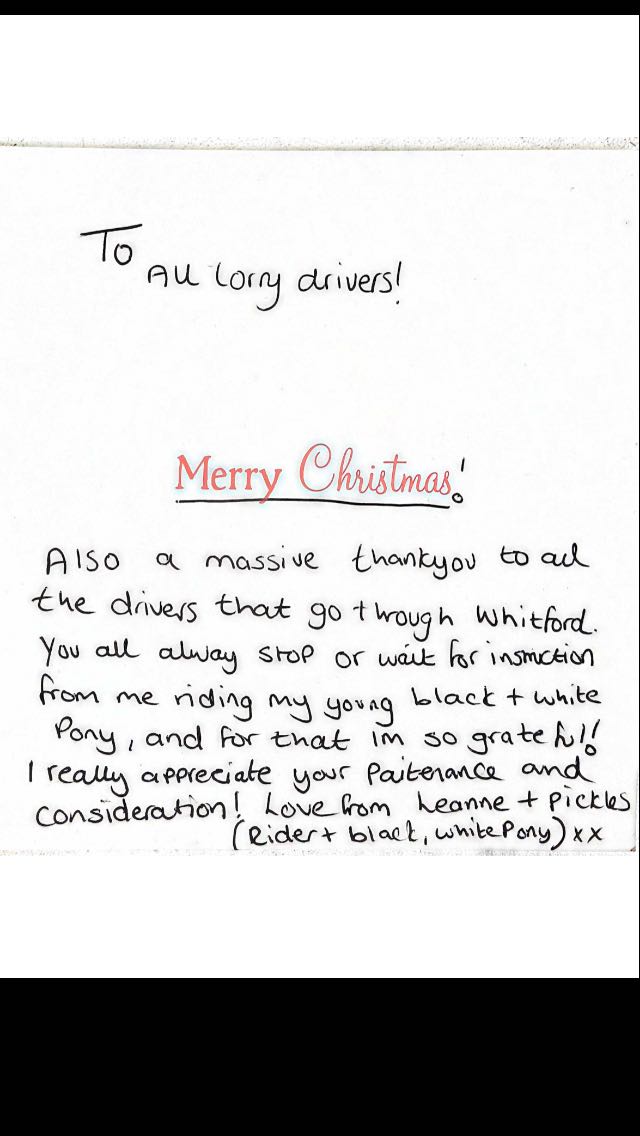 To
All lorry drivers!
Merry Christmas!
Also a massive thankyou to all
the drivers that go through Whitford.
You all alway stop or wait for instruction
from me riding my young black + white
Pony, and for that im so grateful!
I really appreciate your Paitenance and
consideration! Love from Leanne + Pickles
(Rider + black, white Pony) xx